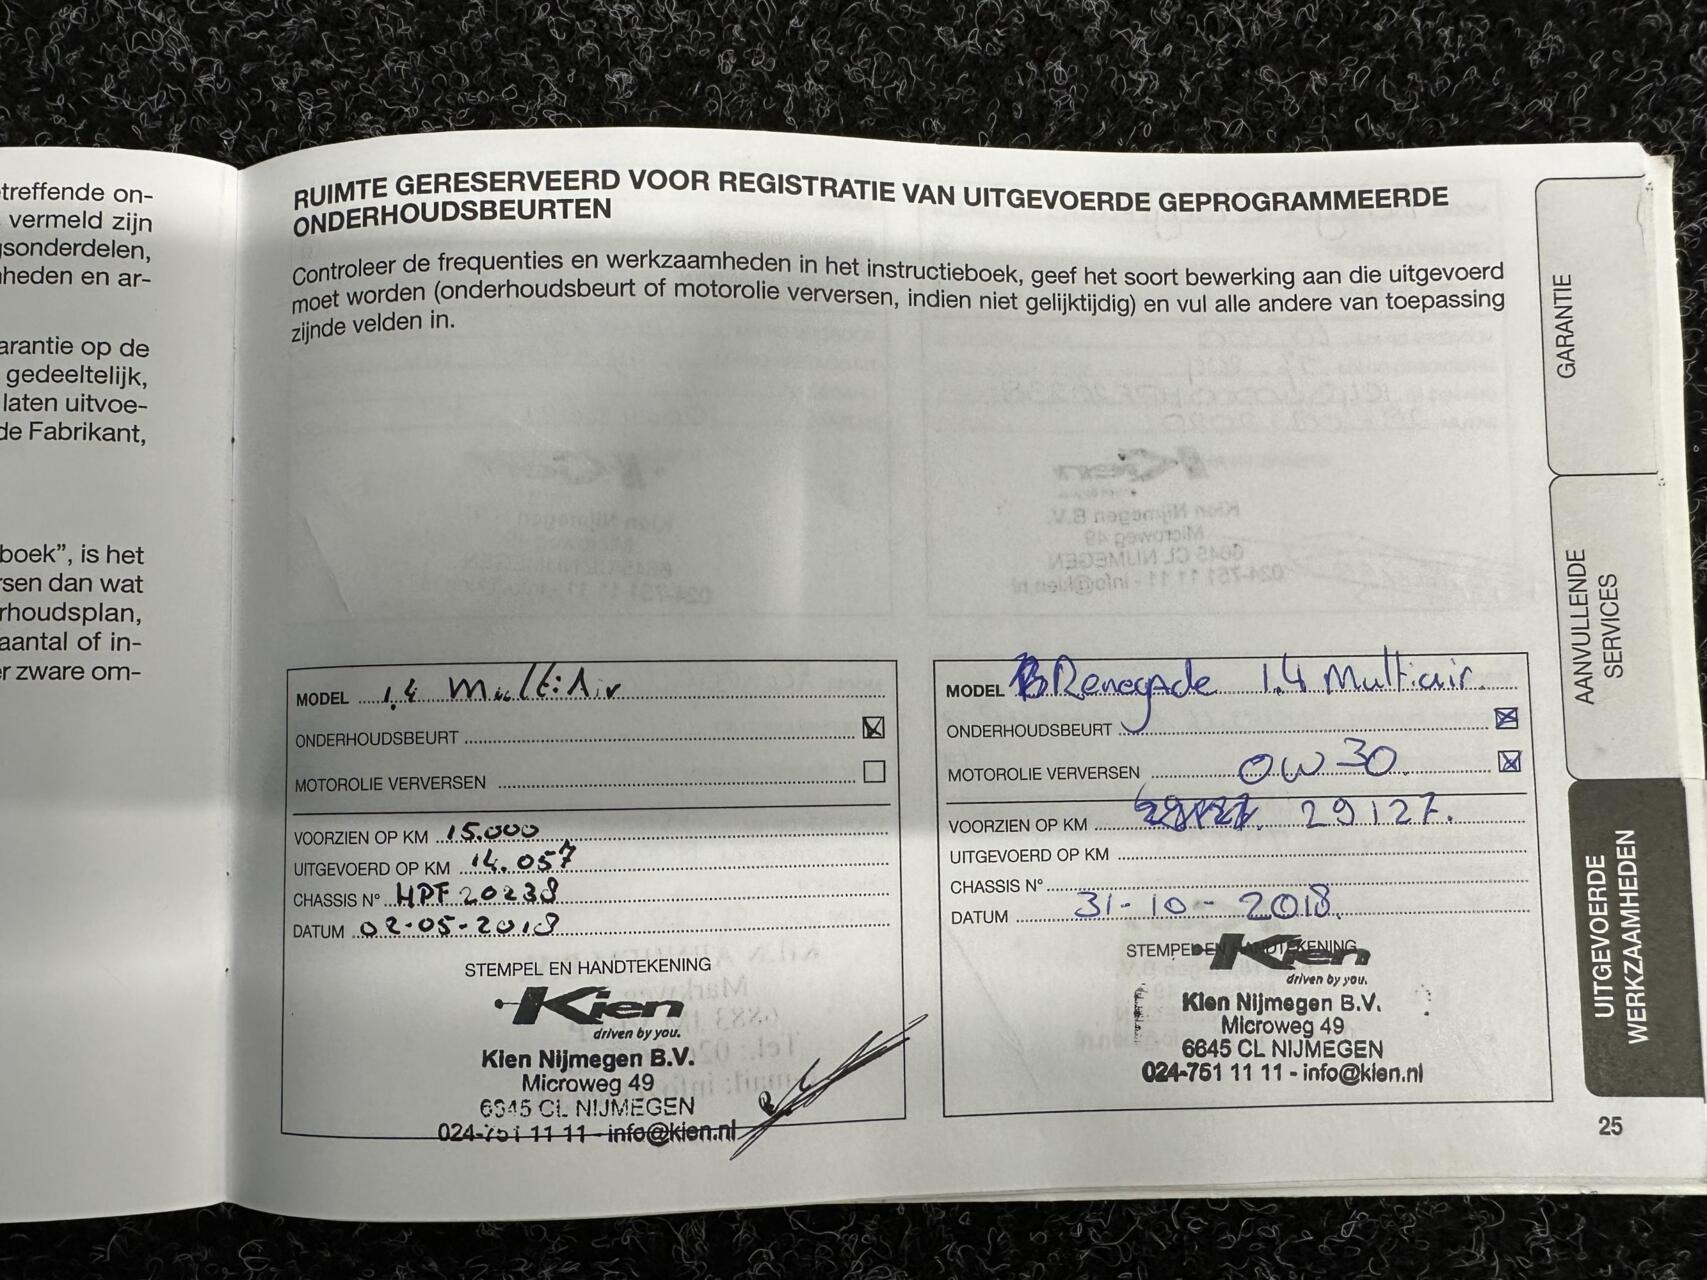 treffende on-
vermeld zijn
gsonderdelen,
heden en ar-
arantie op de
gedeeltelijk,
laten uitvoe-
de Fabrikant,
boek”, is het
rsen dan wat
rhoudsplan,
aantal of in-
er zware om-
RUIMTE GERESERVEERD VOOR REGISTRATIE VAN UITGEVOERDE GEPROGRAMMEERDE
ONDERHOUDSBEURTEN
Controleer de frequenties en werkzaamheden in het instructieboek, geef het soort bewerking aan die uitgevoerd
moet worden (onderhoudsbeurt of motorolie verversen, indien niet gelijktijdig) en vul alle andere van toepassing
zijnde velden in.
MODEL 1.4 MultiAir
ONDERHOUDSBEURT
MOTOROLIE VERVERSEN
VOORZIEN OP KM 15.000
UITGEVOERD OP KM 14.057
CHASSIS N° HPF 20238
DATUM 02-05-2018
STEMPEL EN HANDTEKENING
Kien
driven by you.
Kien Nijmegen B.V.
Microweg 49
6645 CL NIJMEGEN
024-751 11 11 - info@kien.nl
MODEL Renegade 1.4 Multiair.
ONDERHOUDSBEURT
MOTOROLIE VERVERSEN 0W30.
VOORZIEN OP KM 29127.
UITGEVOERD OP KM
CHASSIS N°
DATUM 31-10-2018.
STEMPEL EN HANDTEKENING
Kien
driven by you.
Kien Nijmegen B.V.
Microweg 49
6645 CL NIJMEGEN
024-751 11 11 - info@kien.nl
GARANTIE
AANVULLENDE
SERVICES
UITGEVOERDE
WERKZAAMHEDEN
25